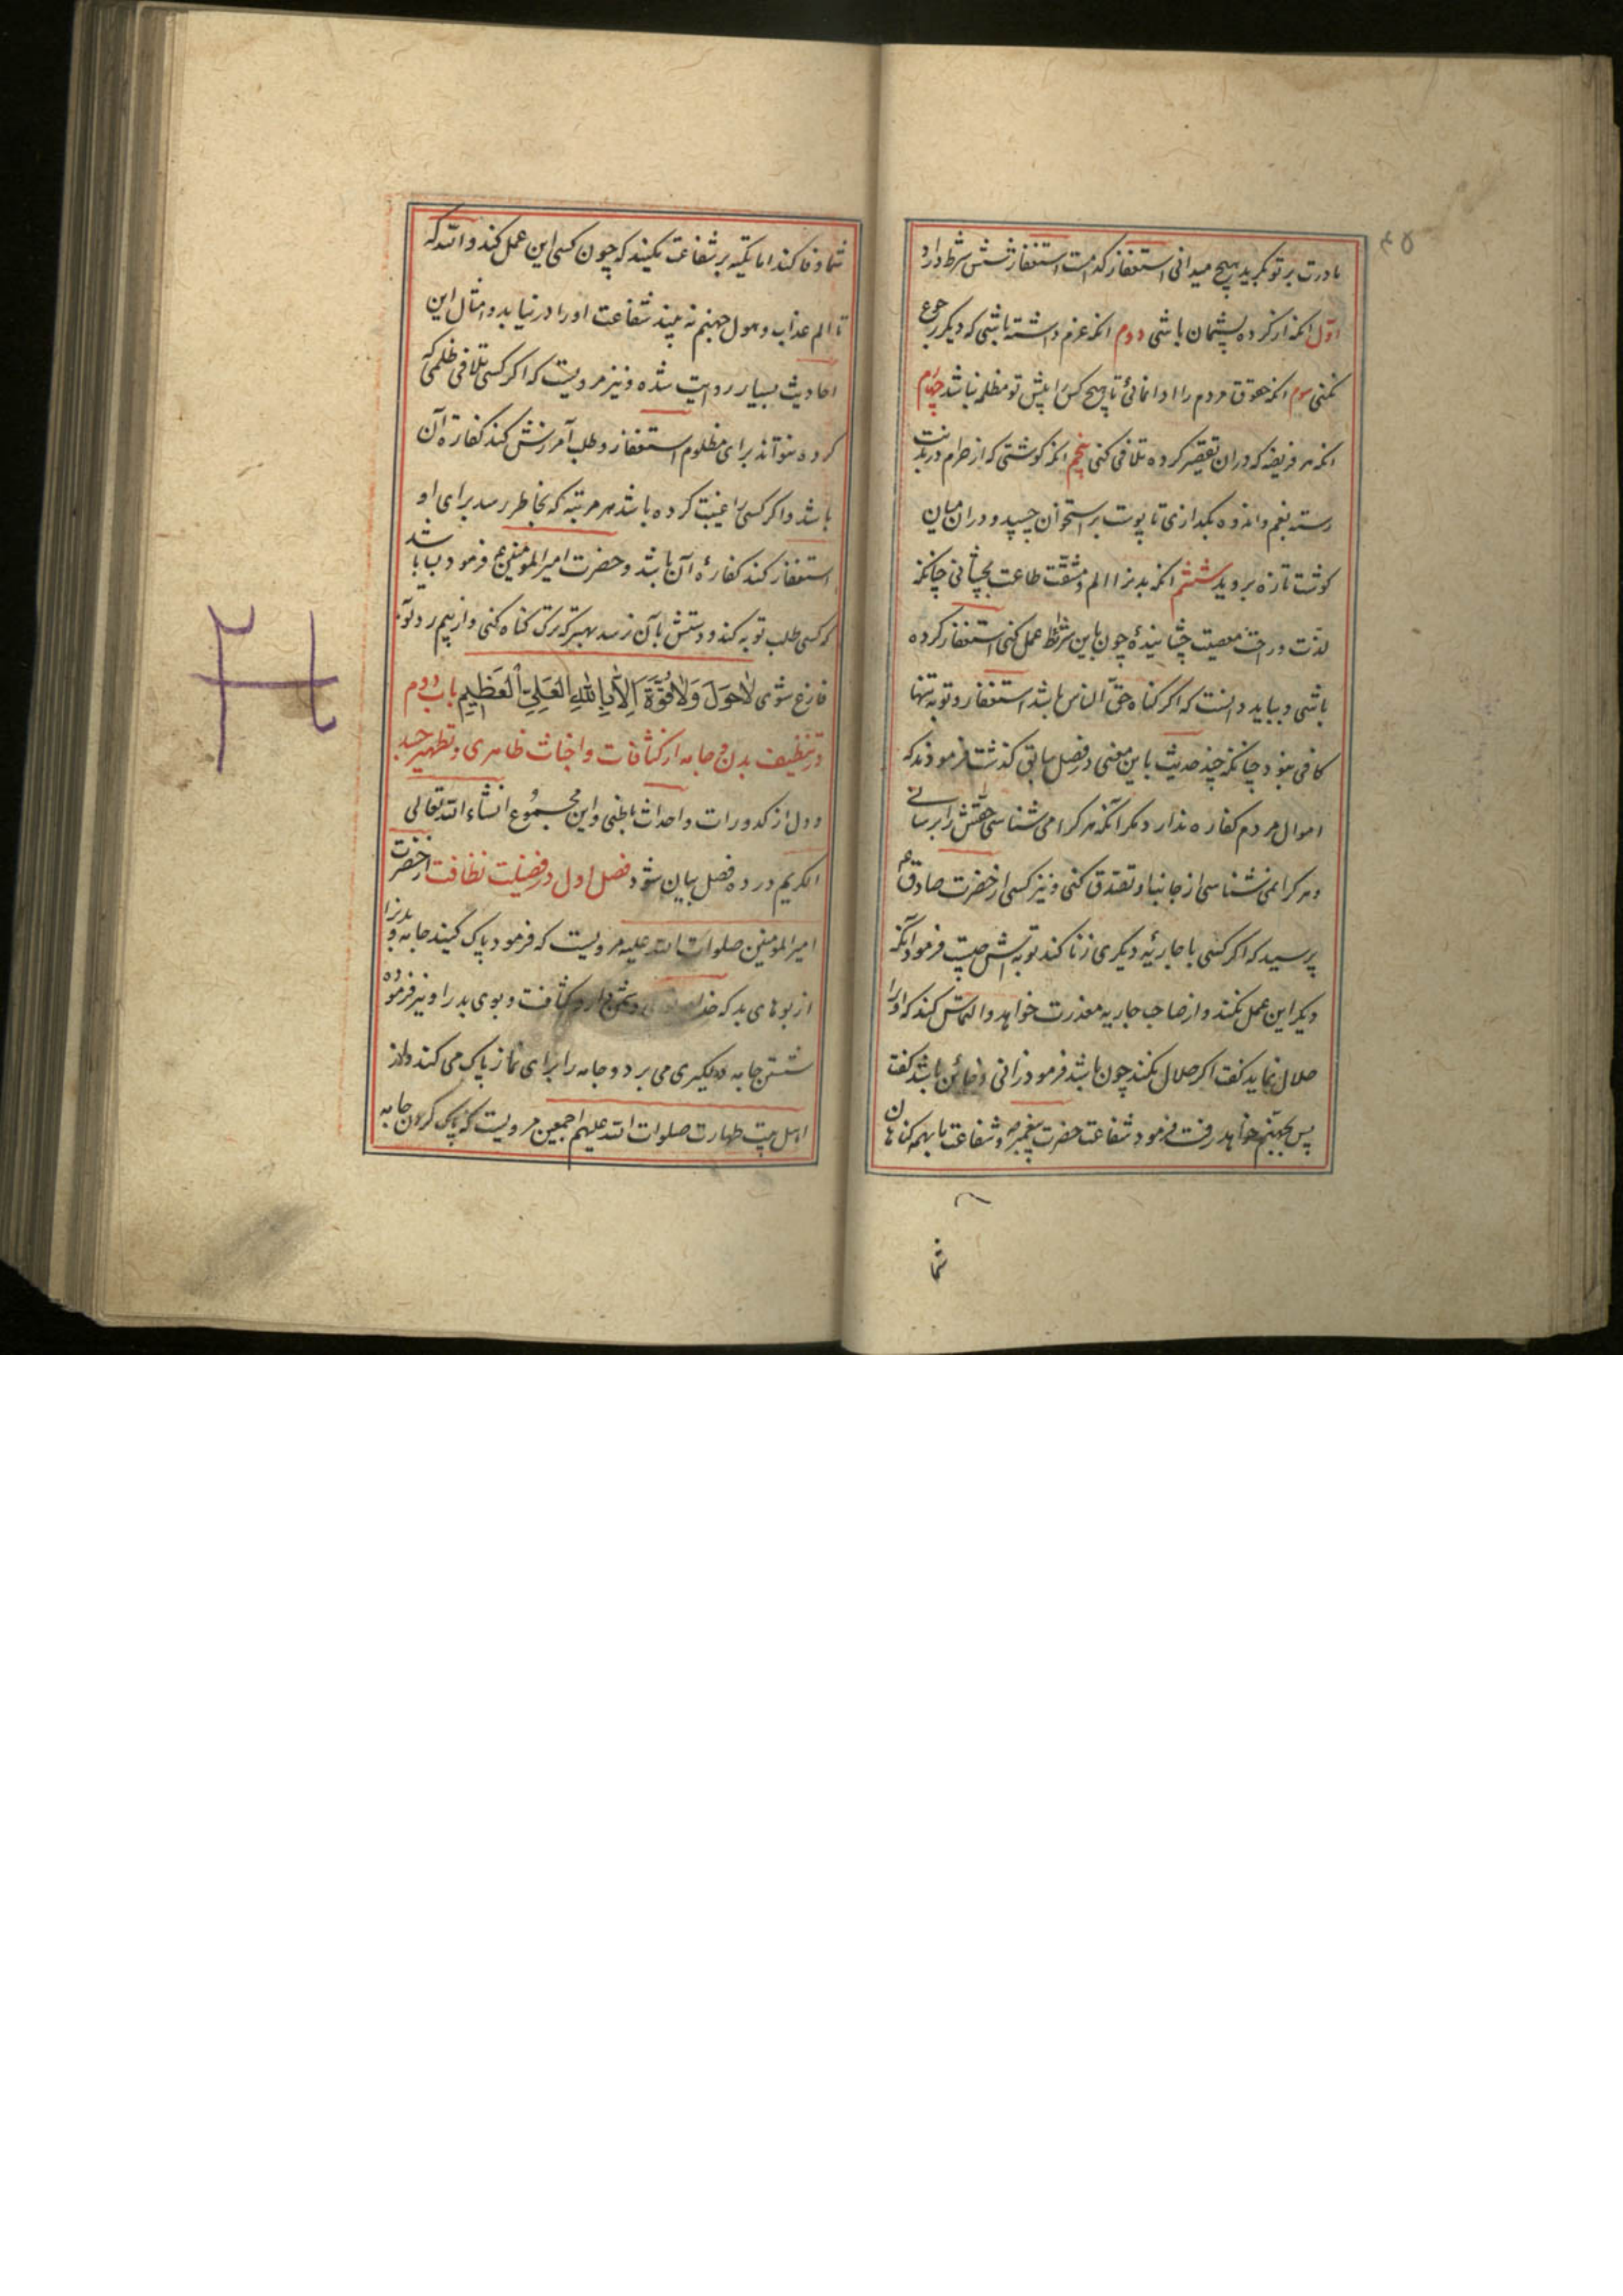 ۴۵
مادرت بر تو بگرید هیچ میدانی استغفار کدامست استغفار شش شرط دارد
اوّل انکه از کرده پشیمان باشی دوم انکه عزم داشته باشی که دیگر رجوع
نکنی سوم انکه حقوق مردم را ادا نمائی تا هیچ کس را پیش تو مظلمه نباشد چهارم
انکه هر فریضه که در ان تقصیر کرده تلافی کنی پنجم انکه کوشتی که از حرام در بدنت
رسته بغم و اندوه بگدازی تا پوست بر استخوان چسپد و در ان میان
کوشت تازه بروید ششم انکه بدنرا الم و مشقّت طاعت بچشانی چنانکه
لذّت و راحت معصیت چشانیدهٔ چون باین شرائط عمل کنی استغفار کرده
باشی و بباید دانست که اکر کناه حقّ الناس باشد استغفار و توبه تنها
کافی نبود چنانکه چند حدیث باین معنی در فصل سابق کذشت فرمودند که
اموال مردم کفاره ندارد مکر آنکه هر کرا می شناسی حقّش را برسانے
و هر کرا نمی شناسی از جانب او تصدّق کنی و نیز کسی از حضرت صادق ع
پرسید که اکر کسی با جاریهٔ دیکری زنا کند توبه اش چیست فرمود آنکه
دیکر این عمل نکند و از صاحب جاریه معذرت خواهد و التماس کند که او را
حلال نماید کفت اکر حلال نکند چون باشد فرمود زانی و خائن باشد کفت
پس بجهنّم خواهد رفت فرمود شفاعت حضرت پیغمبر ص و شفاعت ما بهمه کناهان
شما
شما وفا کند اما تکیه بر شفاعت نکنید که چون کسی این عمل کند والله که
تا الم عذاب و هول جهنم نه بیند شفاعت او را در نیابد و امثال این
احادیث بسیار روایت شده و نیز مرویست که اکر کسی تلافی ظلمی که
کرده نتواند برای مظلوم استغفار و طلب آمرزش کند کفارهٔ آن
باشد و اکر کسی را غیبت کرده باشد هر مرتبه که بخاطر رسد برای او
استغفار کند کفارهٔ آن باشد و حضرت امیرالمومنین ع فرمود بسا باشد
که کسی طلب توبه کند و دستش بآن نرسد بهتر که ترک کناه کنی و از بیم رد توبه
فارغ شوی لاحَولَ وَلاقُوَّةَ اِلاّ بِاللهِ العَلِیِّ العَظِیمِ باب دوم
در تنظیف بدن و جامه از کثافات و اخباث ظاهری و تطهیر جسد
و دل از کدورات و احداث باطنی و این مجموع انشاء الله تعالی
الکریم در ده فصل بیان شود فصل اول در فضیلت نظافت از حضرت
امیرالمومنین صلوات الله علیه مرویست که فرمود پاک کنید جامه و بدنرا
از بوهای بد که خدا دشمن دارد کثافت و بوی بد را و نیز فرموده
شستن جامه دلکیری می برد و جامه را برای نماز پاک می کند و از
اهل بیت طهارت صلوات الله علیهم اجمعین مرویست که پاک کردن جامه